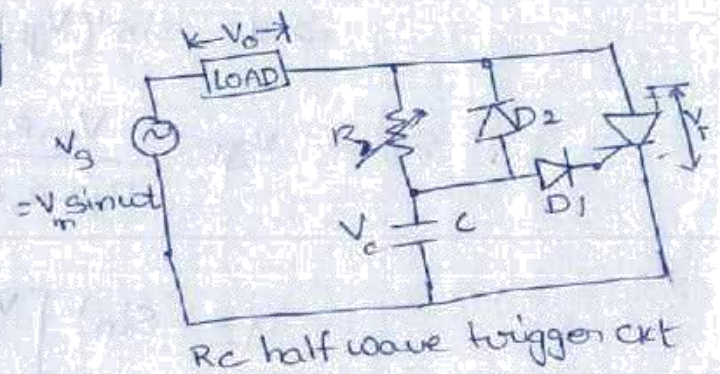 V₀
LOAD
Vs
= Vm sinωt
R₂
D2
D1
V_T
Vc
C
Rc half wave trigger ckt